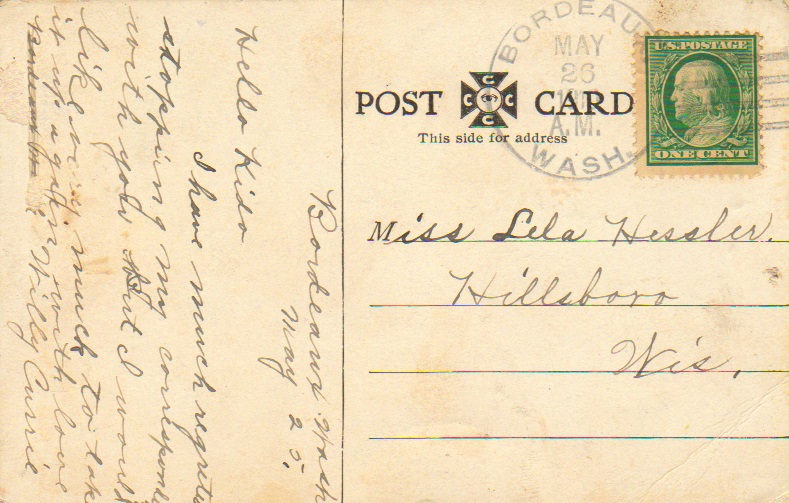 BORDEAU
MAY
26
A.M.
WASH.
U.S. POSTAGE
ONE CENT
POST CARD
C C C C
This side for address
Miss Lela Hessler.
Hillsboro
Wis.
Bordeaux Wash
May 25.
Hello Kido
I have much regrets
stopping my corresponde
with you But I would
like very much to take
it up again with love
Willy Currie